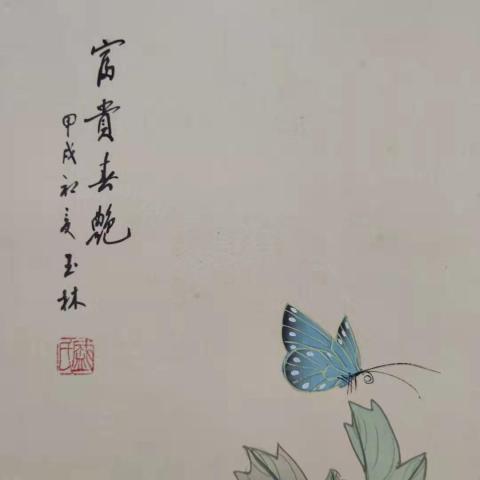 富貴春艷
甲戌初夏玉林